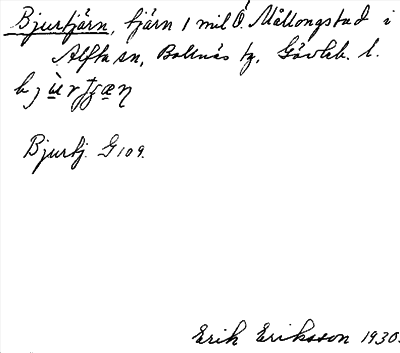 Bjurtjärn, tjärn 1 mil Ö. Mållongstad i
Alfta sn, Bollnäs tg, Gävleb. l.
Bjurtj. G 109.
Erik Eriksson 1930.